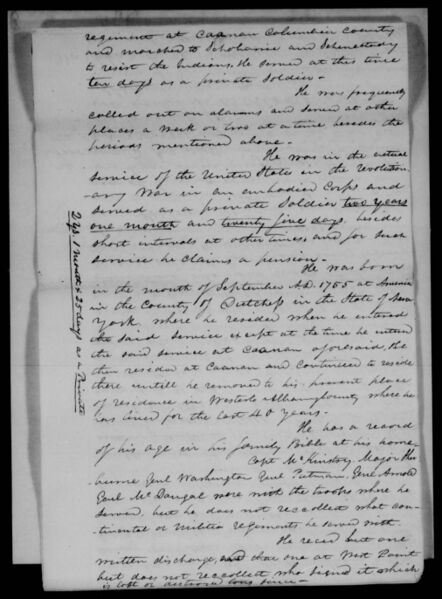 regiment at Caanan Columbia County
and marched to Schoharie and Schenectady
to resist the Indians, He served at this time
ten days as a private Soldier.
He was frequently
called out on alarms and served at other
places a week or two at a time besides the
periods mentioned above.
He was in the actual
service of the United States in the revolution
ary War in an embodied Corps and
served as a private Soldier two years
one month and twenty five days, besides
short intervals at other times and for such
service he claims a pension.
He was born
in the month of September A.D. 1755 at Amenia
in the County of Dutchess in the State of New
York, where he resided when he entered
the said service except at the time he entered
the said service at Caanan aforesaid, he
then resided at Caanan and continued to reside
there untill he removed to his present place
of residence in Westerlo Albany County where he
has lived for the last 40 years.
He has a record
of his age in his family Bible at his home
Capt McKinstry, Major
Genl Washington Genl Putnam, Genl Arnold
Genl McDougal were with the troops where he
served, but he does not recollect what con-
tinental or militia regiments he served with.
He recd but one
written discharge, and that one at West Point
but does not recollect who signed it which
is lost or destroyed long since.
2 ys. 1 month & 25 days as a Private